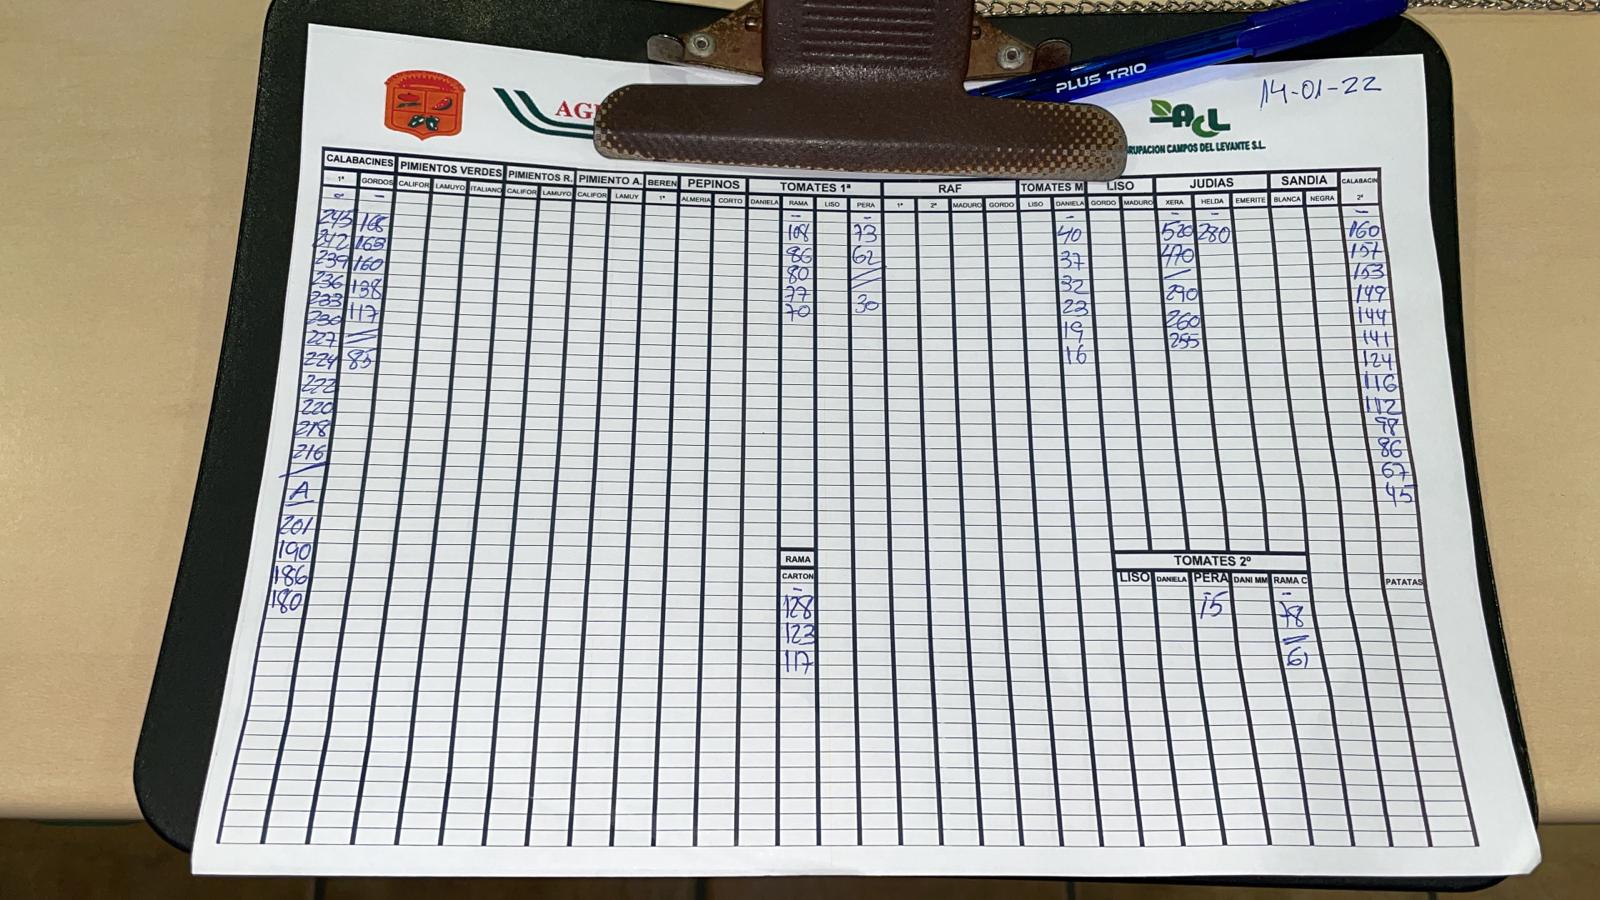 PLUS TRIO
14-01-22
AG
ACL
RUPACION CAMPOS DEL LEVANTE S.L.
CALABACINES PIMIENTOS VERDES PIMIENTOS R. PIMIENTO A. BEREN PEPINOS TOMATES 1ª RAF TOMATES M LISO JUDIAS SANDIA CALABACIN
1ª GORDOS CALIFOR LAMUYO ITALIANO CALIFOR LAMUYO CALIFOR LAMUY 1ª ALMERIA CORTO DANIELA RAMA LISO PERA 1ª 2ª MADURO GORDO LISO DANIELA GORDO MADURO XERA HELDA EMERITE BLANCA NEGRA 2ª
245 168 108 73 40 520 280 160
242 163 86 62 37 470 151
239 160 80 32 153
236 138 77 30 23 290 149
233 117 70 19 260 144
230 16 255 141
227 124
224 85 116
222 112
220 98
218 86
216 67
A 45
201
190
186
180
RAMA
CARTON
128
123
117
TOMATES 2º
LISO DANIELA PERA DANI MM RAMA C PATATAS
15 78
61